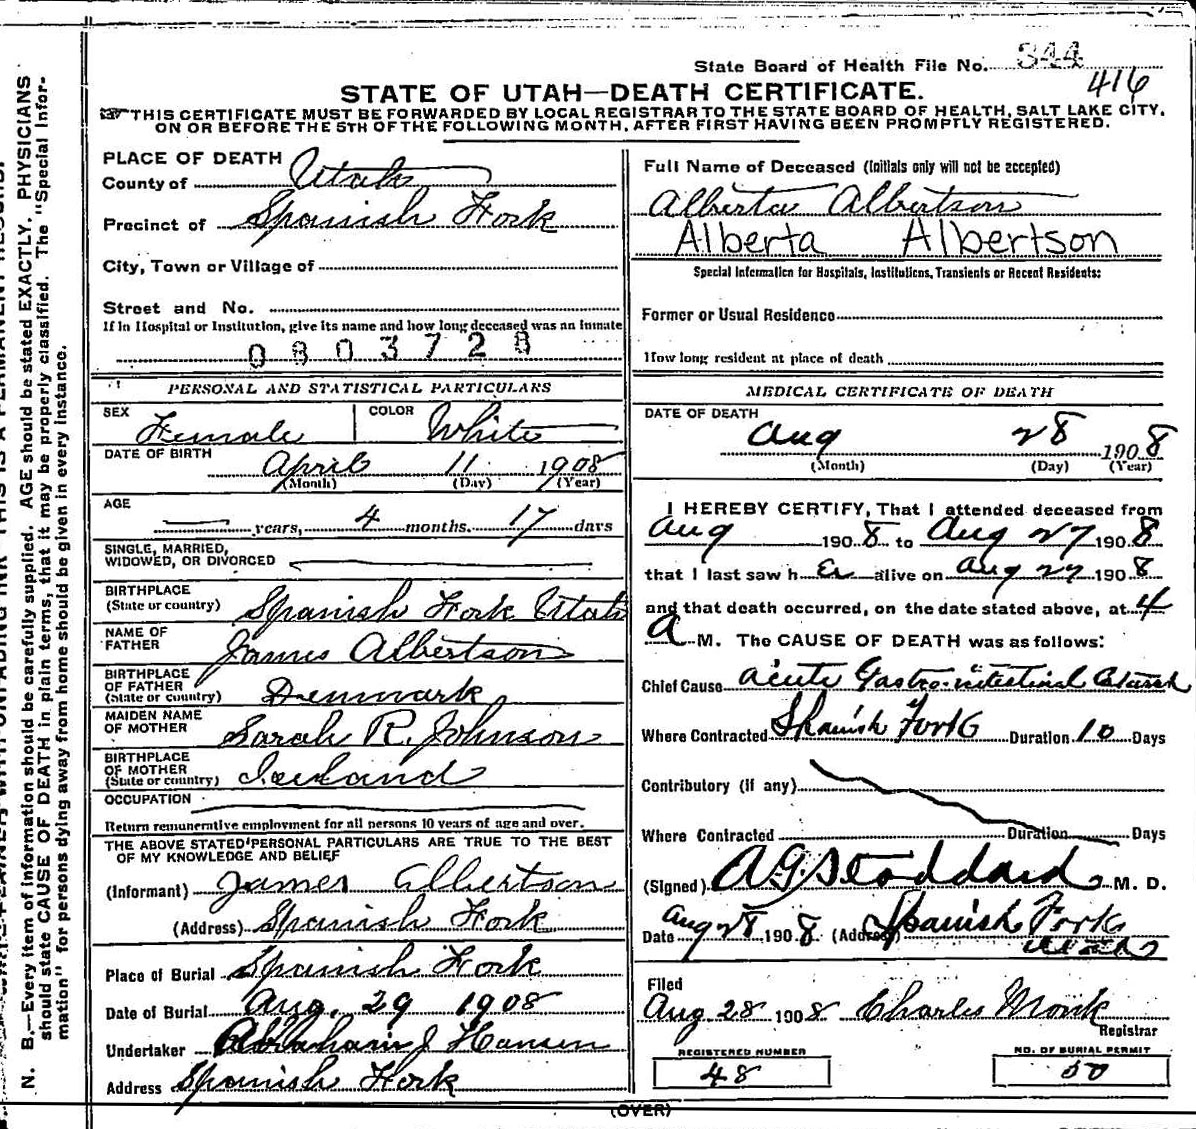 State Board of Health File No. 344
416
STATE OF UTAH—DEATH CERTIFICATE.
THIS CERTIFICATE MUST BE FORWARDED BY LOCAL REGISTRAR TO THE STATE BOARD OF HEALTH, SALT LAKE CITY,
ON OR BEFORE THE 5TH OF THE FOLLOWING MONTH, AFTER FIRST HAVING BEEN PROMPTLY REGISTERED.
PLACE OF DEATH
County of Utah
Precinct of Spanish Fork
City, Town or Village of
Street and No.
If in Hospital or Institution, give its name and how long deceased was an inmate
0803728
PERSONAL AND STATISTICAL PARTICULARS
SEX Female COLOR White
DATE OF BIRTH April 11 1908
(Month) (Day) (Year)
AGE years, 4 months. 17 days
SINGLE, MARRIED,
WIDOWED, OR DIVORCED
BIRTHPLACE
(State or country) Spanish Fork Utah
NAME OF
FATHER James Albertson
BIRTHPLACE
OF FATHER
(State or country) Denmark
MAIDEN NAME
OF MOTHER Sarah R. Johnson
BIRTHPLACE
OF MOTHER
(State or country) Iceland
OCCUPATION
Return remunerative employment for all persons 10 years of age and over.
THE ABOVE STATED PERSONAL PARTICULARS ARE TRUE TO THE BEST
OF MY KNOWLEDGE AND BELIEF
(Informant) James Albertson
(Address) Spanish Fork
Place of Burial Spanish Fork
Date of Burial Aug. 29 1908
Undertaker Abraham J Hansen
Address Spanish Fork
Full Name of Deceased (Initials only will not be accepted)
Alberta Albertson
Alberta Albertson
Special Information for Hospitals, Institutions, Transients or Recent Residents:
Former or Usual Residence
How long resident at place of death
MEDICAL CERTIFICATE OF DEATH
DATE OF DEATH
Aug 28 1908
(Month) (Day) (Year)
I HEREBY CERTIFY, That I attended deceased from
Aug 1908 to Aug 27 1908
that I last saw h Er alive on Aug 27 1908
and that death occurred, on the date stated above, at 4
A M. The CAUSE OF DEATH was as follows:
Chief Cause Acute Gastro-intestinal Catarrh
Where Contracted Spanish Fork Duration 10 Days
Contributory (if any)
Where Contracted Duration Days
(Signed) A G Stoddard M. D.
Date Aug 28 1908 (Address) Spanish Fork
Utah
Filed
Aug 28 1908 Charles Monk
Registrar
REGISTERED NUMBER
48
NO. OF BURIAL PERMIT
50
(OVER)
N. B.—Every item of information should be carefully supplied. AGE should be stated EXACTLY. PHYSICIANS
should state CAUSE OF DEATH in plain terms, that it may be properly classified. The "Special Infor-
mation" for persons dying away from home should be given in every instance.